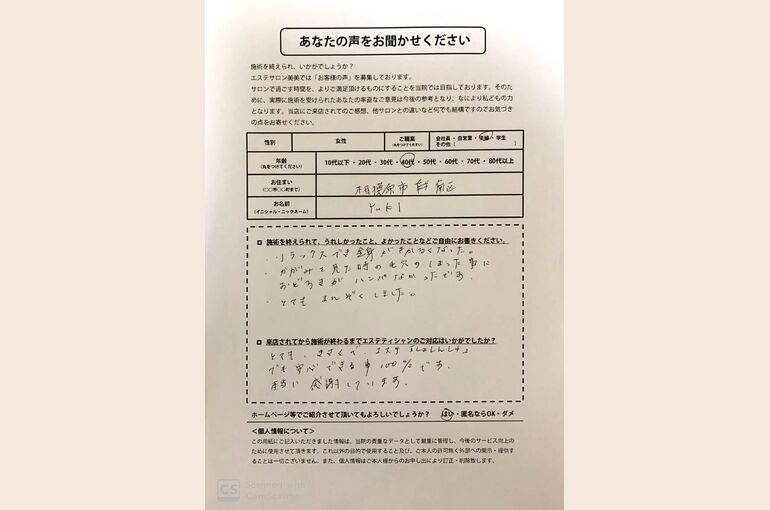 あなたの声をお聞かせください
施術を終えられ、いかがでしょうか？
エステサロン美美では「お客様の声」を募集しております。
サロンで過ごす時間を、よりご満足頂けるものにすることを当院では目指しております。そのた
めに、実際に施術を受けられたあなたの率直なご意見は今後の参考となり、なにより私どもの力
となります。当店にご来店されてのご感想、他サロンとの違いなど何でも結構ですのでお気づき
の点をお寄せください。
性別 女性 ご職業 (丸をつけてください) 会社員・自営業・主婦・学生
その他（ ）
年齢 (丸をつけてください) 10代以下・20代・30代・40代・50代・60代・70代・80代以上
お住まい (〇〇市〇〇町まで) 相模原市 南区
お名前 (イニシャル・ニックネーム) YuKI
施術を終えられて、うれしかったこと、よかったことなどご自由にお書きください。
・リラックスでき 全身がかるくなった。
・かがみを見た時の毛穴のしまった事に
おどろきがハンパなかったです。
・とてもまんぞくしました。
来店されてから施術が終わるまでエステティシャンのご対応はいかがでしたか？
とても、きさくで、エステ しょしんしゃ
でも安心できる事100%です。
本当に感謝しています。
ホームページ等でご紹介させて頂いてもよろしいでしょうか？ はい・匿名ならOK・ダメ
＜個人情報について＞
この用紙にご記入いただきました情報は、当院の貴重なデータとして厳重に管理し、今後のサービス向上の
ために使用させて頂きます。これ以外の目的で使用すること及び、ご本人の許可無く外部への開示・提供す
ることは一切ございません。また、個人情報はご本人様からのお申し出により訂正・削除致します。
CS Scanned with
CamScanner